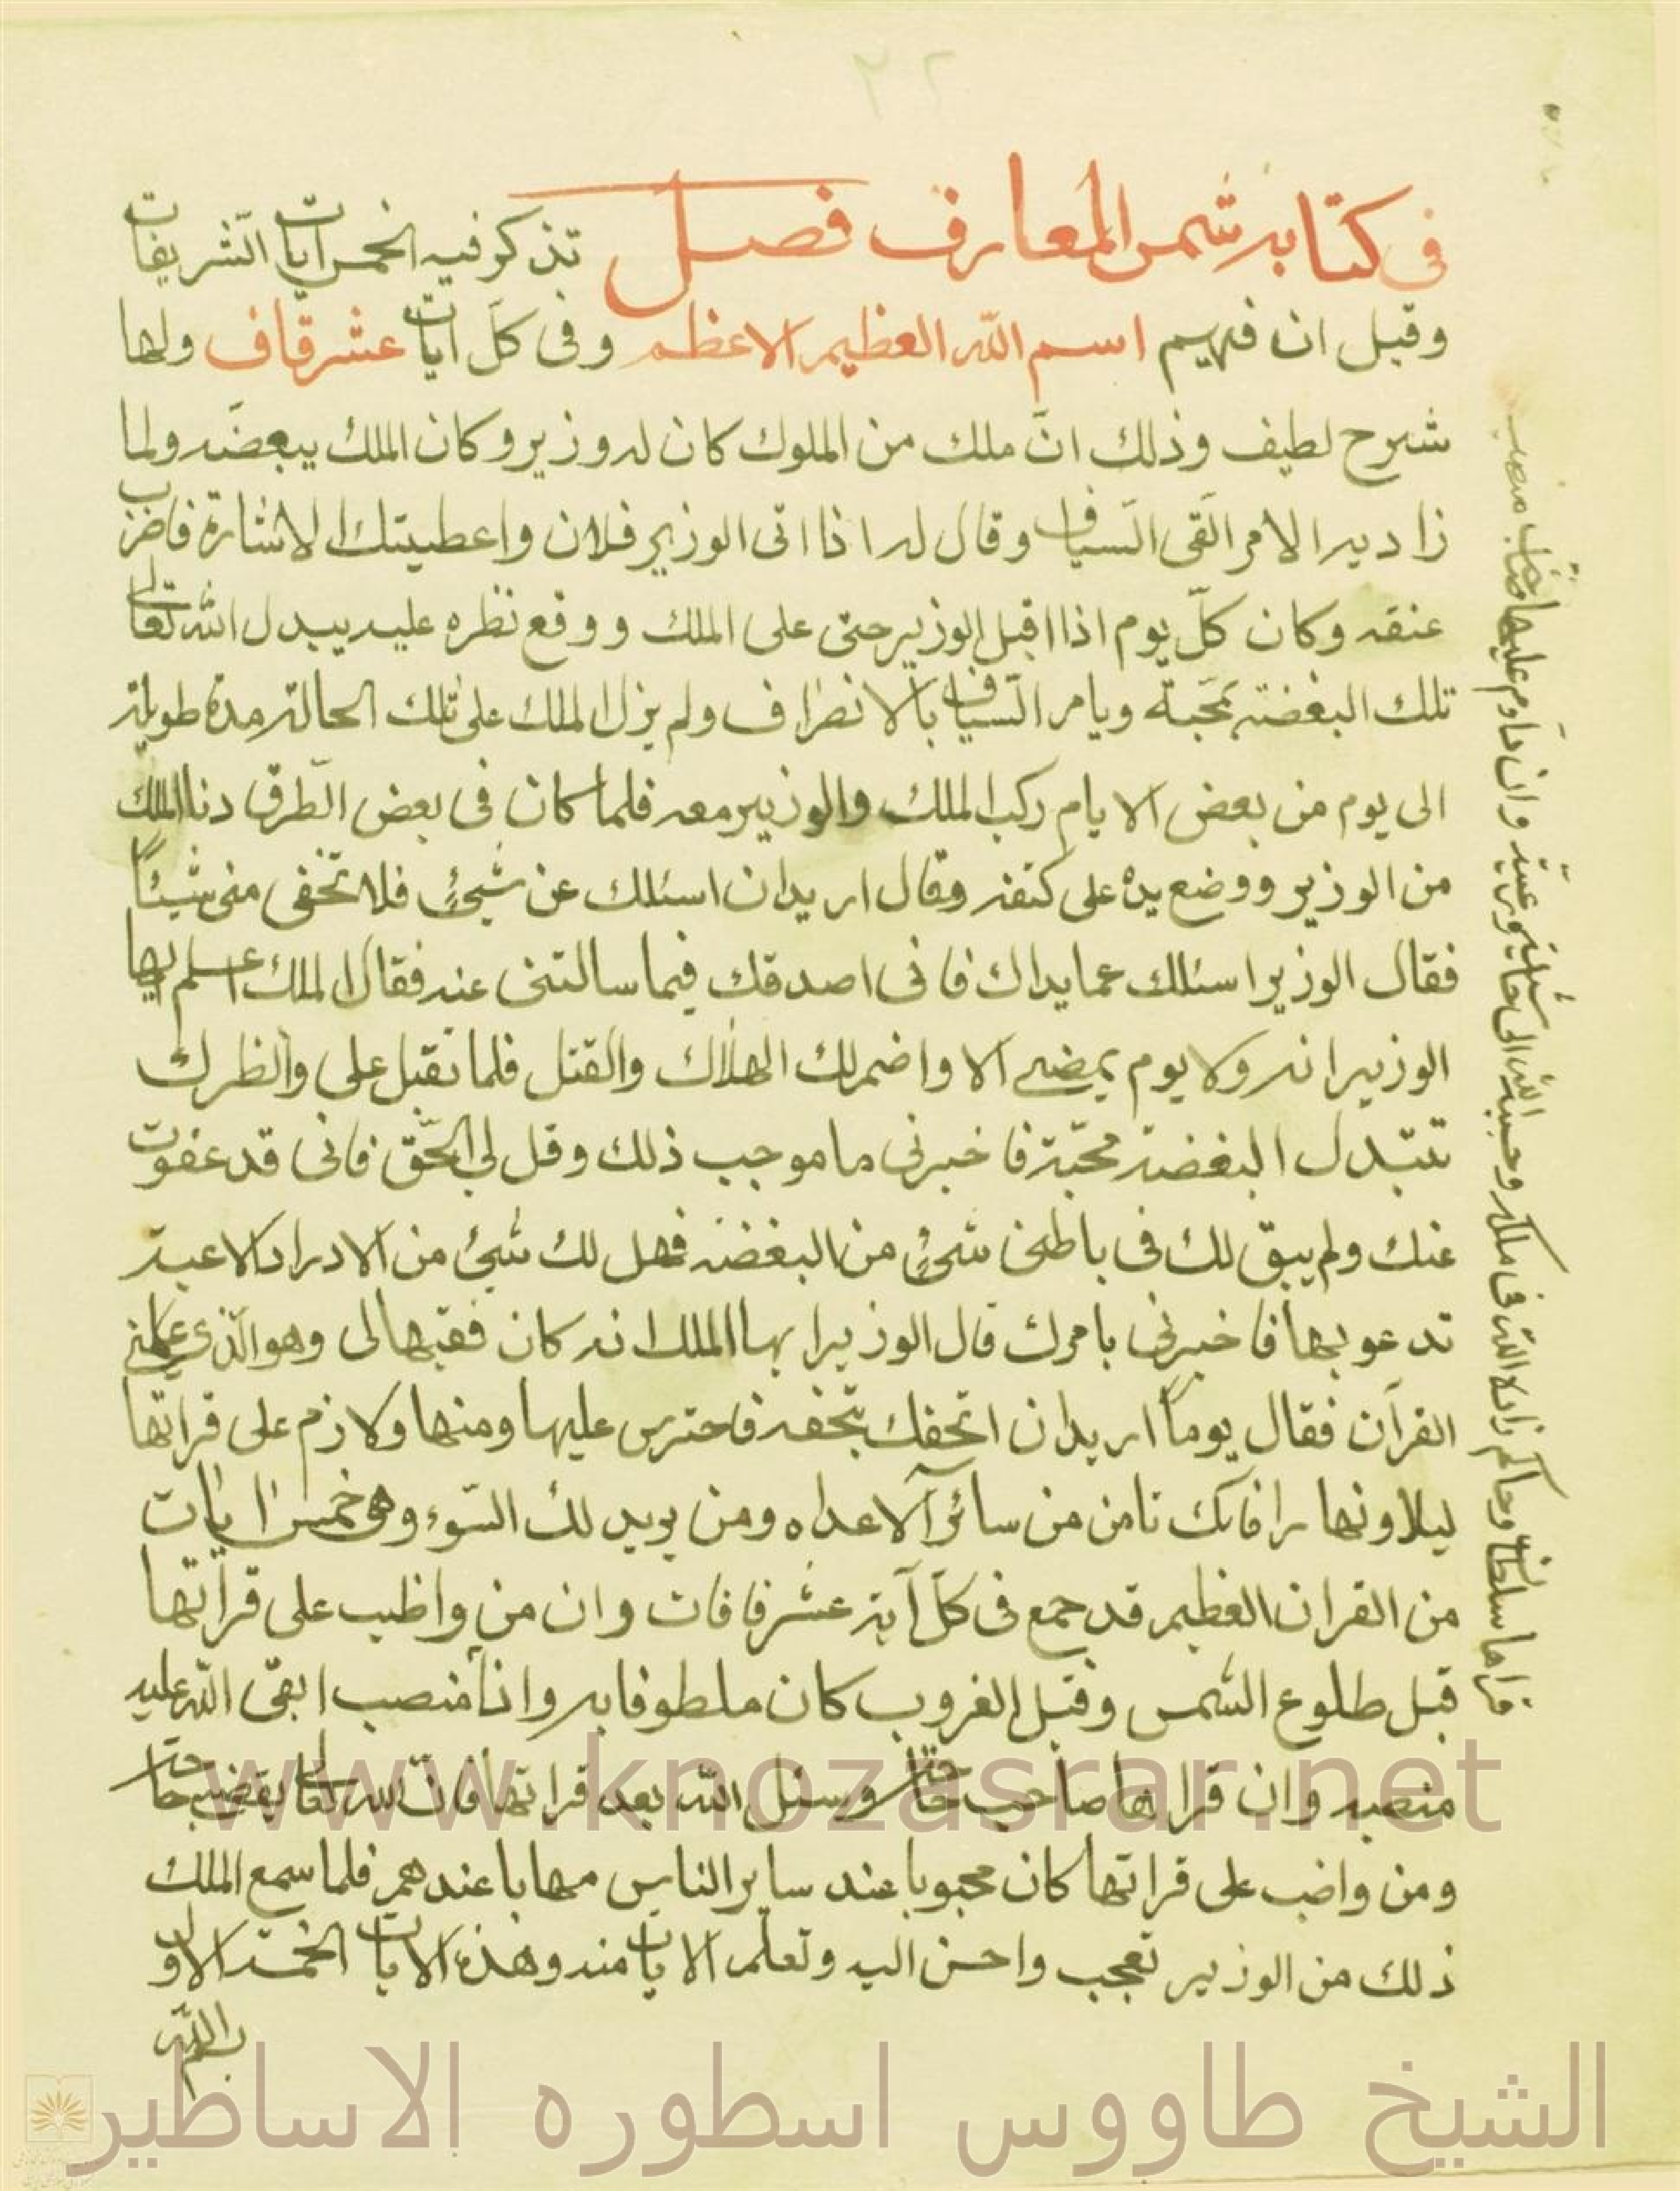 فى كتابه شمس المعارف فصل تذكر فيه الخمس ايات الشريفات
وقيل ان فيهم اسم الله العظيم الاعظم وفى كل ايات عشر قاف ولها
شرح لطيف وذلك ان ملك من الملوك كان له وزير وكان الملك يبغضه ولما
زاد به الامر القى السياف وقال له اذا اتى الوزير فلان واعطيتك الاشارة فاضرب
عنقه وكان كل يوم اذا اقبل الوزير حتى على الملك ووقع نظره عليه يبدل الله تعالى
تلك البغضة محبة ويامر السياف بالانصراف ولم يزل الملك على تلك الحالة مدة طويلة
الى يوم من بعض الايام ركب الملك والوزير معه فلما كان فى بعض الطرق دنا الملك
من الوزير ووضع يده على كتفه وقال اريد ان اسئلك عن شيئ فلا تخفى منى شيئا
فقال الوزير اسئلك عما بدا لك فانى اصدقك فيما سالتنى عنه فقال الملك اعلم ايها
الوزير انه ولا يوم يمضى الا واضمر لك الهلاك والقتل فلما تقبل على وانظرك
تتبدل البغضة محبة فاخبرنى ما موجب ذلك وقل لى الحق فانى قد عفوت
عنك ولم يبق لك فى باطنى شيئ من البغضة فهل لك شيئ من الادراد لاعبة
تدعو بها فاخبرنى بامرك قال الوزير ايها الملك انه كان فقيها لى وهو الذى علمنى
القرآن فقال يوما اريد ان اتحفك بتحفه فاحترس عليها ومنها ولازم على قراتها
ليلا ونهارا فانك تامن من سائر الاعداه ومن يريد لك السوء وهى خمس ايات
من القران العظيم قد جمع فى كل آية عشر قافات وان من واظب على قراتها
قبل طلوع الشمس وقبل الغروب كان ملطوفا به وان ذا منصب ابقى الله عليه
منصبه وان قراها صاحب حاجة وسئل الله بعد قراتها فان الله تعالى يقضى حاجته
ومن واضب على قراتها كان محبوبا عند ساير الناس مهابا عندهم فلما سمع الملك
ذلك من الوزير تعجب واحسن اليه وتعلم الايات منه وهذه الايات الخمسة الاول
بسم الله
قراها سلطان وحاكم زاده الله فى ملكه وحببه الله الى رعيته وان داوم عليها صاحب منصب
www.knozasrar.net
الشيخ طاووس اسطوره الاساطير